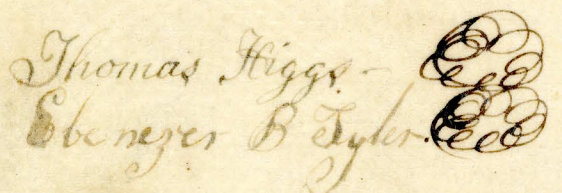 Thomas Higgs
Ebenezer B Tyler.